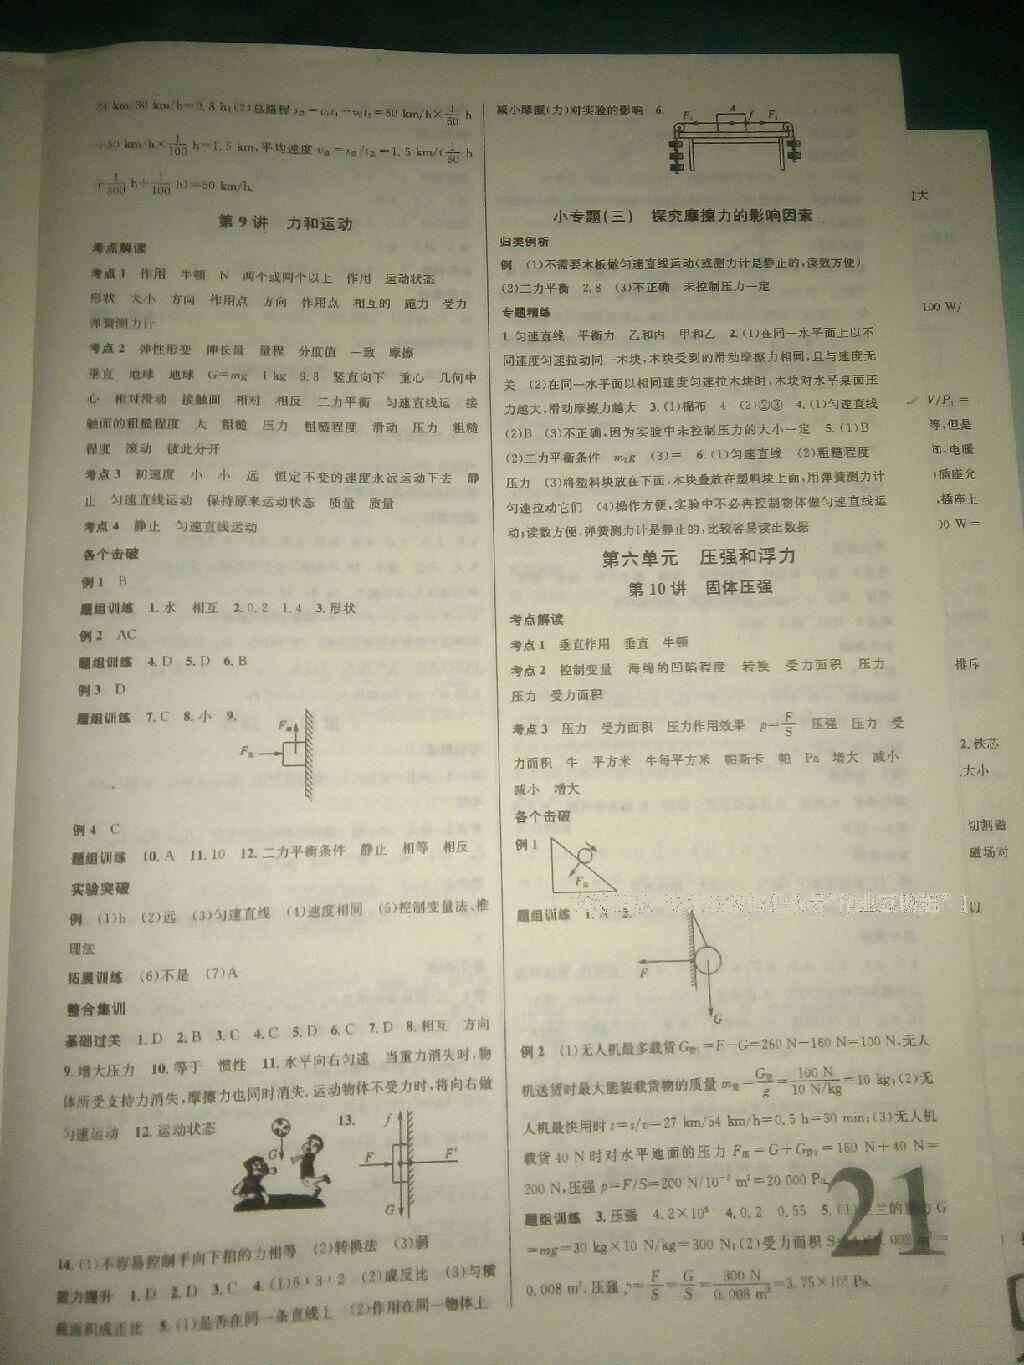 24 km/30 km/h=0.8 h;(2)总路程 s总=v₁t₁+v₂t₂=50 km/h×1/50 h
+50 km/h×1/100 h=1.5 km,平均速度 v总=s总/t总=1.5 km/(1/50 h
+1/300 h+1/100 h)=50 km/h.
第 9 讲 力和运动
考点解读
考点 1 作用 牛顿 N 两个或两个以上 作用 运动状态
形状 大小 方向 作用点 方向 作用点 相互的 施力 受力
弹簧测力计
考点 2 弹性形变 伸长量 量程 分度值 一致 摩擦
垂直 地球 地球 G=mg 1 kg 9.8 竖直向下 重心 几何中
心 相对滑动 接触面 相对 相反 二力平衡 匀速直线运 接
触面的粗糙程度 大 粗糙 压力 粗糙程度 滑动 压力 粗糙
程度 滚动 彼此分开
考点 3 初速度 小 小 远 恒定不变的速度永远运动下去 静
止 匀速直线运动 保持原来运动状态 质量 质量
考点 4 静止 匀速直线运动
各个击破
例 1 B
题组训练 1.水 相互 2.0.2 1.4 3.形状
例 2 AC
题组训练 4.D 5.D 6.B
例 3 D
题组训练 7.C 8.小 9.
例 4 C
题组训练 10.A 11.10 12.二力平衡条件 静止 相等 相反
实验突破
例 (1)h (2)远 (3)匀速直线 (4)速度相同 (5)控制变量法、推
理法
拓展训练 (6)不是 (7)A
整合集训
基础过关 1.D 2.B 3.C 4.C 5.D 6.C 7.D 8.相互 方向
9.增大压力 10.等于 惯性 11.水平向右匀速 当重力消失时,物
体所受支持力消失,摩擦力也同时消失.运动物体不受力时,将向右做
匀速运动 12.运动状态
G
13.
f
F F′
G
14.(1)不容易控制手向下拍的力相等 (2)转换法 (3)弱
能力提升 1.D 2.D 3.C 4.(1)6:3:2 (2)成反比 (3)与横
截面积成正比 5.(1)是否在同一条直线上 (2)作用在同一物体上
减小摩擦(力)对实验的影响 6.
A
f
小专题(三) 探究摩擦力的影响因素
归类例析
例 (1)不需要木板做匀速直线运动(或测力计是静止的,读数方便)
(2)二力平衡 2.8 (3)不正确 未控制压力一定
专题精练
1.匀速直线 平衡力 乙和丙 甲和乙 2.(1)在同一水平面上以不
同速度匀速拉动同一木块,木块受到的滑动摩擦力相同,且与速度无
关 (2)在同一水平面以相同速度匀速拉木块时,木块对水平桌面压
力越大,滑动摩擦力越大 3.(1)棉布 4 (2)②③ 4.(1)匀速直线
(2)B (3)不正确,因为实验中未控制压力的大小一定 5.(1)B
(2)二力平衡条件 m₂g (3)= 6.(1)匀速直线 (2)粗糙程度
压力 (3)将塑料块放在下面,木块叠放在塑料块上面,用弹簧测力计
匀速拉动它们 (4)操作方便,实验中不必再控制物体做匀速直线运
动;读数方便,弹簧测力计是静止的,比较容易读出数据
第六单元 压强和浮力
第 10 讲 固体压强
考点解读
考点 1 垂直作用 垂直 牛顿
考点 2 控制变量 海绵的凹陷程度 转换 受力面积 压力
压力 受力面积
考点 3 压力 受力面积 压力作用效果 p=F/S 压强 压力 受
力面积 牛 平方米 牛每平方米 帕斯卡 帕 Pa 增大 减小
减小 增大
各个击破
例 1
F压
题组训练
F
G
例 2 (1)无人机最多载货 G货1=F-G=260 N-160 N=100 N,无人
机送货时最大能装载货物的质量 m货=G货/g=100 N/10 N/kg=10 kg;(2)无
人机最快用时 t=s/v=27 km/54 km/h=0.5 h=30 min;(3)无人机
载货 40 N 时对水平地面的压力 F压=G+G货2=160 N+40 N=
200 N,压强 p=F/S=200 N/10⁻² m²=20 000 Pa.
题组训练 3.压强 4.2×10⁶ 4.0.2 0.55 5.(1) 兰的 力 G
=mg=30 kg×10 N/kg=300 N;(2)受力面积 S 0.002 m²=
0.008 m²,压强 p=F/S=G/S=300 N/0.008 m²=3.75×10⁴ Pa.
21
100 W/
V/P₁=
等,但是
电暖
插座允
,插座上
00 W=
排斥
2.铁芯
大小
切割磁
磁场对
以